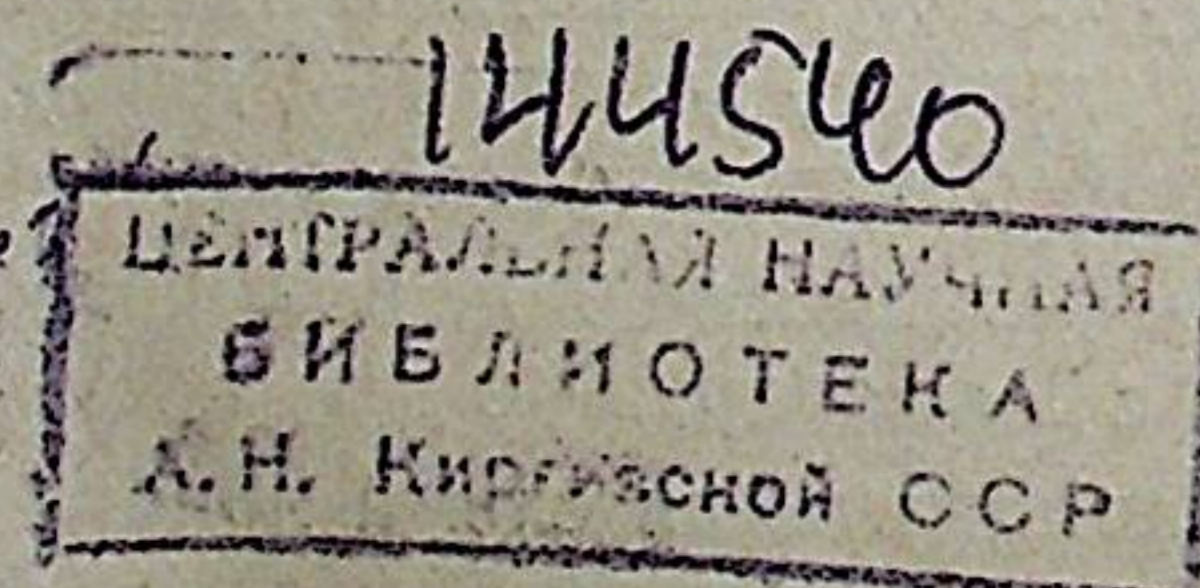 144540
ЦЕНТРАЛЬНАЯ НАУЧНАЯ
БИБЛИОТЕКА
А.Н. Киргизской ССР